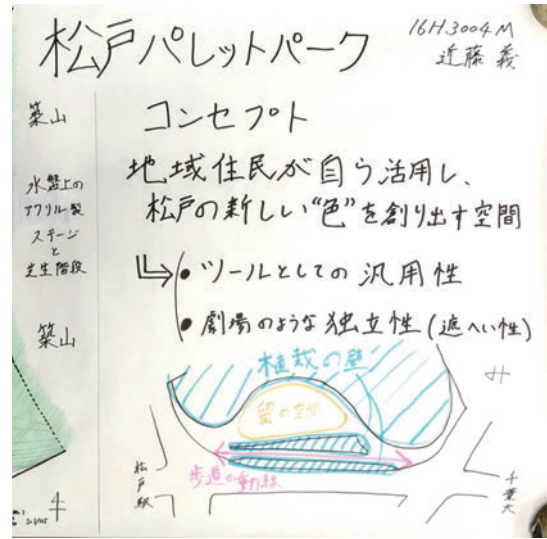 松戸パレットパーク
16H3004M
近藤 義
築山
水盤上の
アクリル製
ステージ
と
芝生階段
築山
コンセプト
地域住民が自ら活用し、
松戸の新しい"色"を創り出す空間
• ツールとしての汎用性
• 劇場のような独立性(遮へい性)
植栽の壁
留の空間
歩道の動線
松戸駅
千葉大